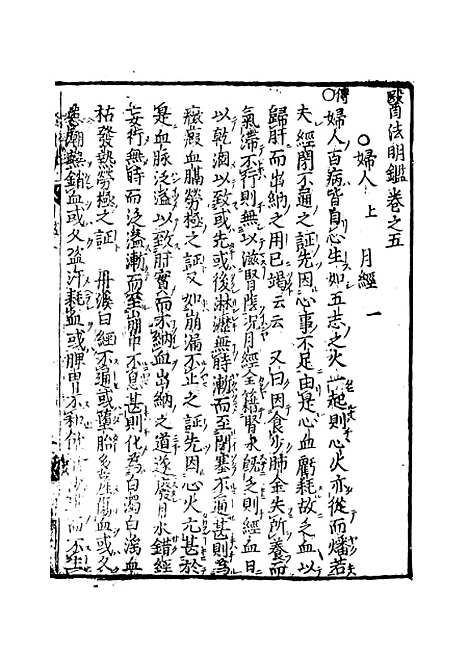 醫法明鑑卷之五
○婦人上 月經一
傳○婦人百病皆自心生如五志之火一起則心火亦從而燔若
夫經閉不通之証先因心事不足由是心血虧耗故乏血以
歸肝而出納之用已竭云云 又曰因食少肺金失所養而
氣滯不行則無以滋腎陰況月經全藉腎水既乏則經血日
以乾涸以致或先或後淋瀝無時漸而至閉塞不通甚則為
癥瘕血膈勞極之証又如崩漏不止之証先因心火亢甚於
是血脉泛溢以致肝實而不納血出納之道遂廢月水錯經
妄行無時而泛溢漸而至崩中不息甚則化為白濁白滛血
枯發熱勞極之証 丹溪曰經不通或墮胎多産傷血或久
潮熱銷血或久盜汗耗血或脾胃不和